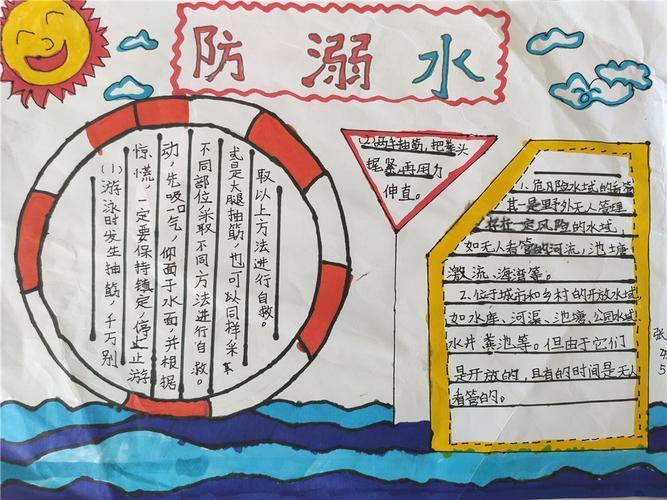 防溺水
(1)游泳时发生抽筋，千万别
惊慌，一定要保持镇定，停止游
动，先吸口气，仰面于水面，并根据
不同部位采取不同方法进行自救。
是大腿抽筋，也可以同样采
取以上方法进行自救。
(2)两手抽筋，把拳头
握紧再用力
伸直。
1.危险水域的看管
其一是野外无人管理
一定风险的水域，
如无人看管的河流，池塘
激流、海湾等。
2.位于城市和乡村的开放水域
如水库、河渠、池塘、公园水域
水井粪池等。但由于它们
是开放的，且有的时间是无人
看管的。
张